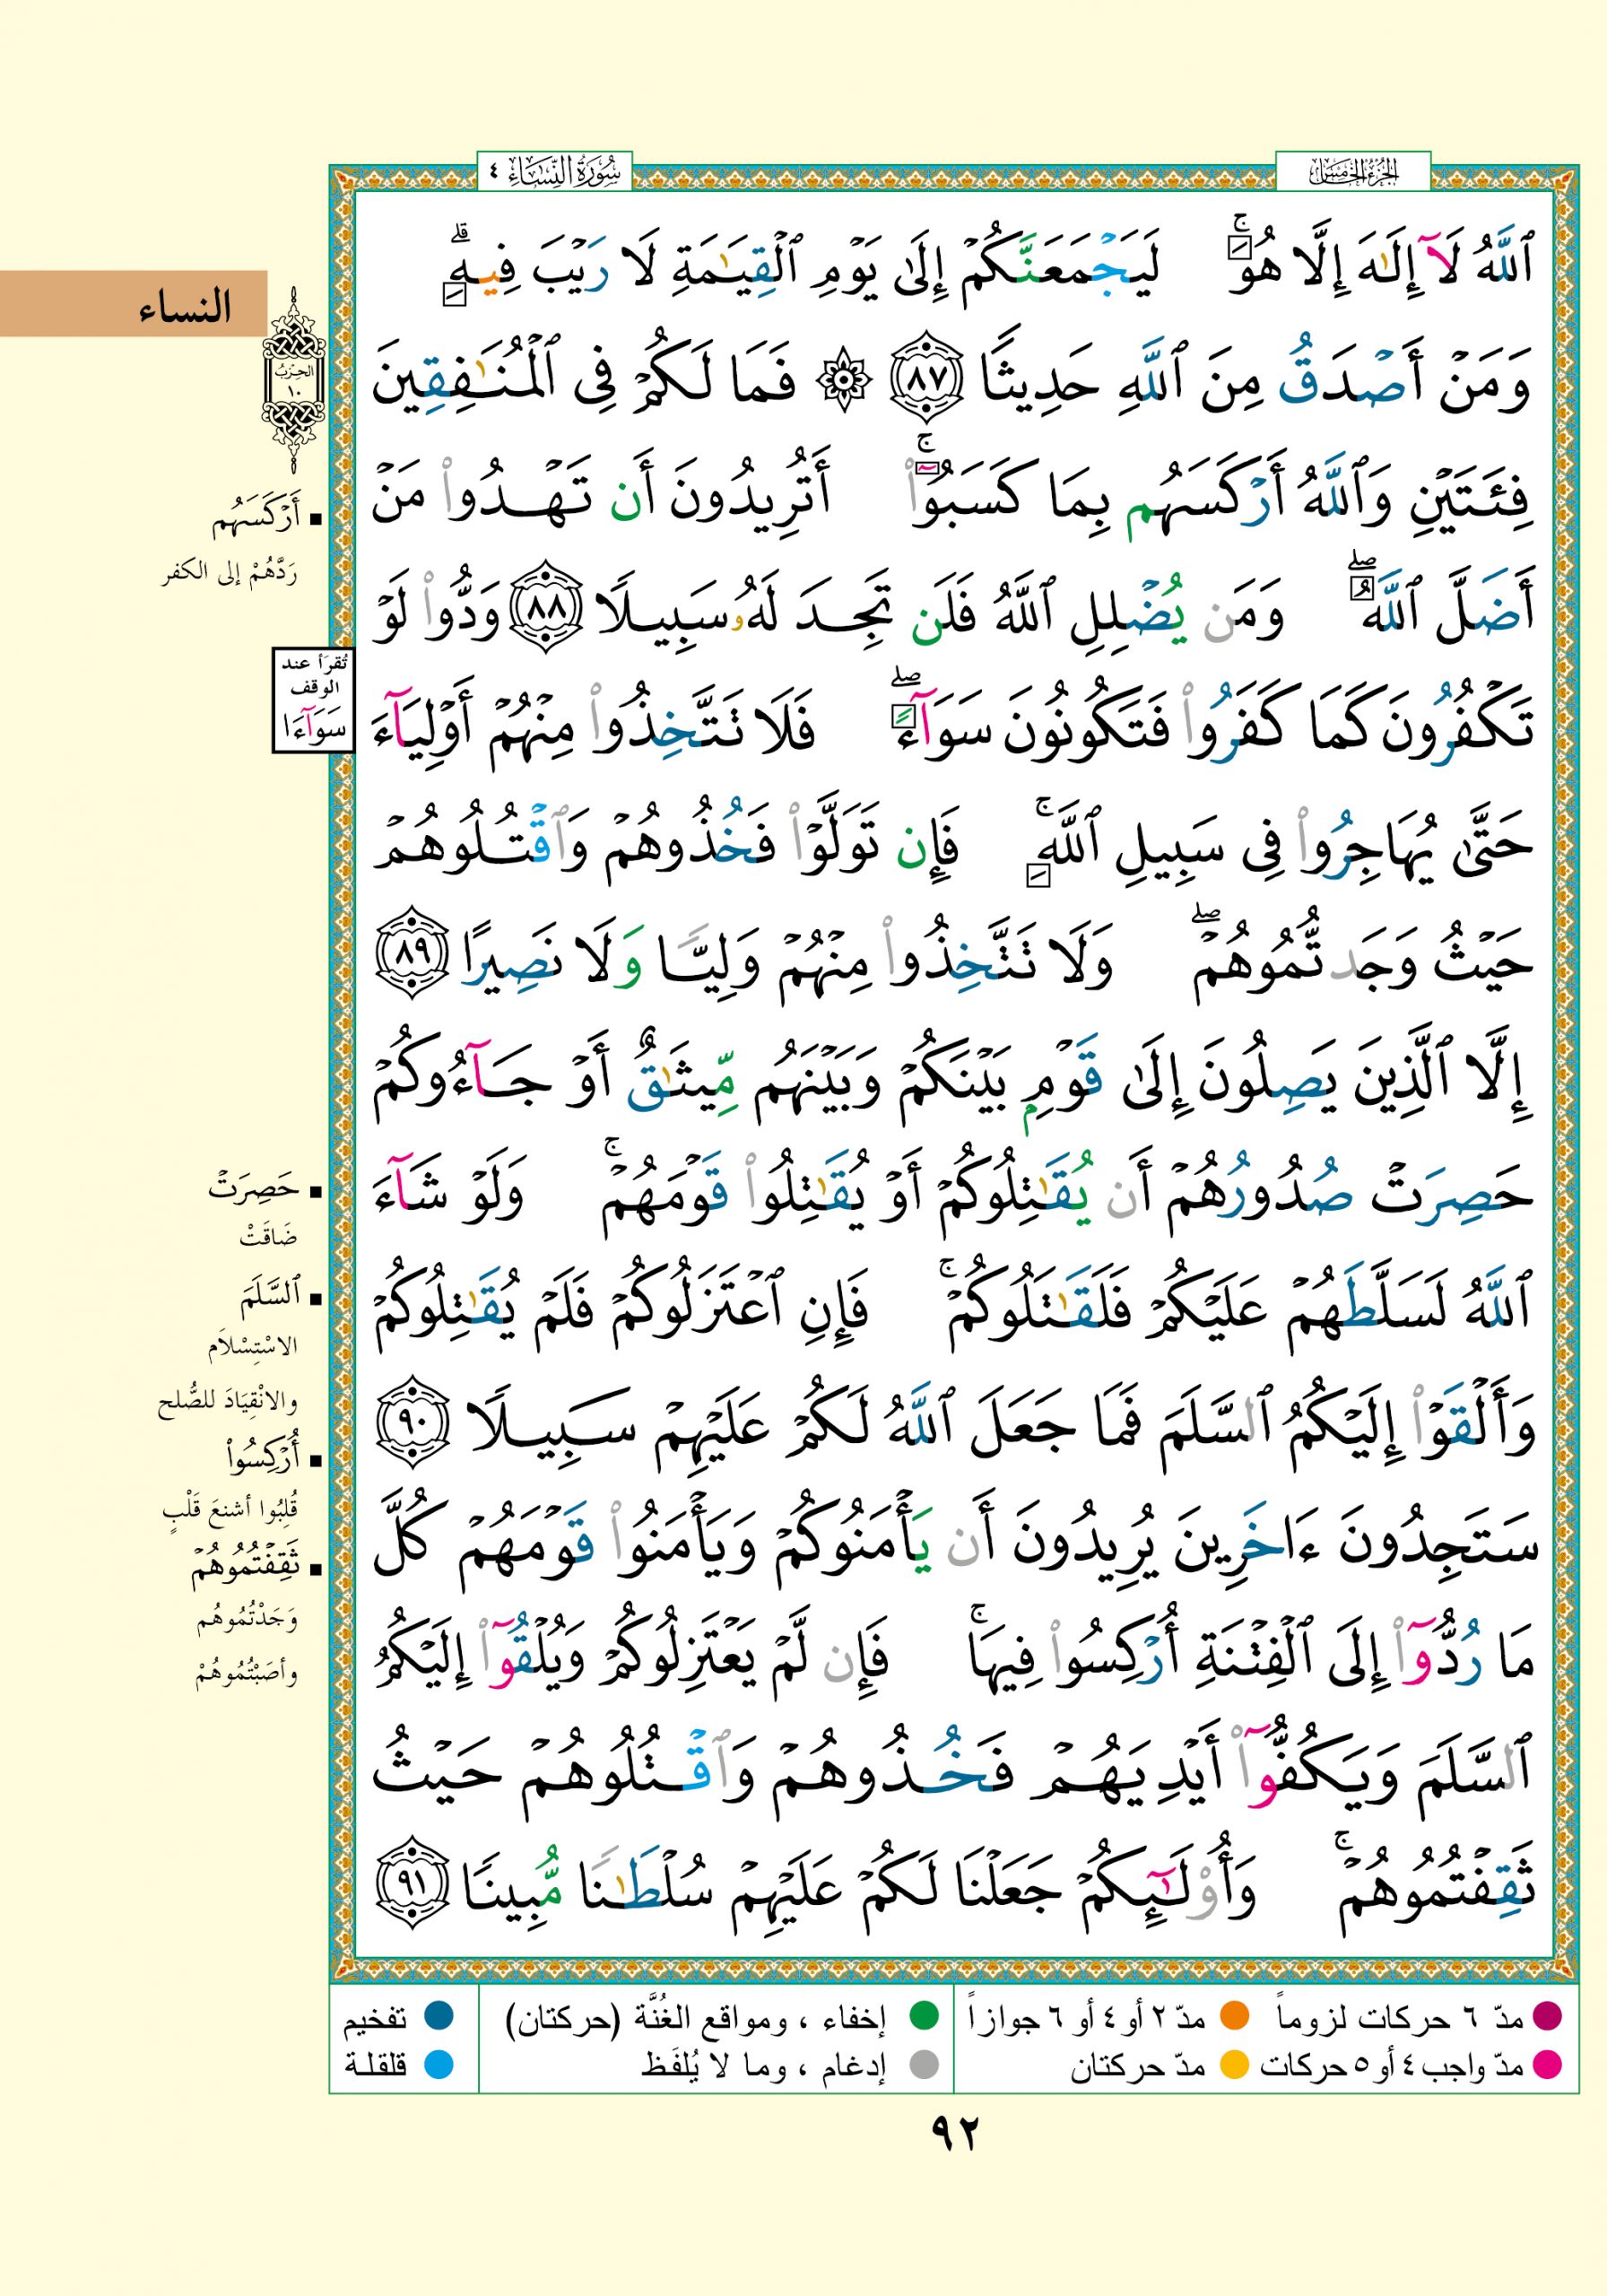 الجزء الخامس
سورة النساء ٤
ٱللَّهُ لَآ إِلَٰهَ إِلَّا هُوَۚ لَيَجْمَعَنَّكُمْ إِلَىٰ يَوْمِ ٱلْقِيَٰمَةِ لَا رَيْبَ فِيهِۗ
وَمَنْ أَصْدَقُ مِنَ ٱللَّهِ حَدِيثًا ٨٧ ۞ فَمَا لَكُمْ فِى ٱلْمُنَٰفِقِينَ
فِئَتَيْنِ وَٱللَّهُ أَرْكَسَهُم بِمَا كَسَبُوٓا۟ۚ أَتُرِيدُونَ أَن تَهْدُوا۟ مَنْ
أَضَلَّ ٱللَّهُۖ وَمَن يُضْلِلِ ٱللَّهُ فَلَن تَجِدَ لَهُۥ سَبِيلًا ٨٨ وَدُّوا۟ لَوْ
تَكْفُرُونَ كَمَا كَفَرُوا۟ فَتَكُونُونَ سَوَآءًۖ فَلَا تَتَّخِذُوا۟ مِنْهُمْ أَوْلِيَآءَ
حَتَّىٰ يُهَاجِرُوا۟ فِى سَبِيلِ ٱللَّهِۚ فَإِن تَوَلَّوْا۟ فَخُذُوهُمْ وَٱقْتُلُوهُمْ
حَيْثُ وَجَدتُّمُوهُمْۖ وَلَا تَتَّخِذُوا۟ مِنْهُمْ وَلِيًّا وَلَا نَصِيرًا ٨٩
إِلَّا ٱلَّذِينَ يَصِلُونَ إِلَىٰ قَوْمٍۭ بَيْنَكُمْ وَبَيْنَهُم مِّيثَٰقٌ أَوْ جَآءُوكُمْ
حَصِرَتْ صُدُورُهُمْ أَن يُقَٰتِلُوكُمْ أَوْ يُقَٰتِلُوا۟ قَوْمَهُمْۚ وَلَوْ شَآءَ
ٱللَّهُ لَسَلَّطَهُمْ عَلَيْكُمْ فَلَقَٰتَلُوكُمْۚ فَإِنِ ٱعْتَزَلُوكُمْ فَلَمْ يُقَٰتِلُوكُمْ
وَأَلْقَوْا۟ إِلَيْكُمُ ٱلسَّلَمَ فَمَا جَعَلَ ٱللَّهُ لَكُمْ عَلَيْهِمْ سَبِيلًا ٩٠
سَتَجِدُونَ ءَاخَرِينَ يُرِيدُونَ أَن يَأْمَنُوكُمْ وَيَأْمَنُوا۟ قَوْمَهُمْ كُلَّ
مَا رُدُّوٓا۟ إِلَى ٱلْفِتْنَةِ أُرْكِسُوا۟ فِيهَاۚ فَإِن لَّمْ يَعْتَزِلُوكُمْ وَيُلْقُوٓا۟ إِلَيْكُمُ
ٱلسَّلَمَ وَيَكُفُّوٓا۟ أَيْدِيَهُمْ فَخُذُوهُمْ وَٱقْتُلُوهُمْ حَيْثُ
ثَقِفْتُمُوهُمْۚ وَأُو۟لَٰٓئِكُمْ جَعَلْنَا لَكُمْ عَلَيْهِمْ سُلْطَٰنًا مُّبِينًا ٩١
النساء
الحزب
١٠
▪ أَرْكَسَهُم
رَدَّهُمْ إلى الكفر
تُقرَأ عند
الوقف
سَوَآءَا
▪ حَصِرَتْ
ضَاقَتْ
▪ ٱلسَّلَمَ
الاسْتِسْلَامَ
والانْقِيَادَ للصُّلح
▪ أُرْكِسُوا۟
قُلِبُوا أشنعَ قَلْبٍ
▪ ثَقِفْتُمُوهُمْ
وَجَدْتُمُوهُم
وأصَبْتُمُوهُمْ
مدّ ٦ حركات لزوماً ● مدّ ٢ أو ٤ أو ٦ جوازاً ● إخفاء ، ومواقع الغُنَّة (حركتان) ● تفخيم
مدّ واجب ٤ أو ٥ حركات ● مدّ حركتان ● إدغام ، وما لا يُلفَظ ● قلقلة
٩٢